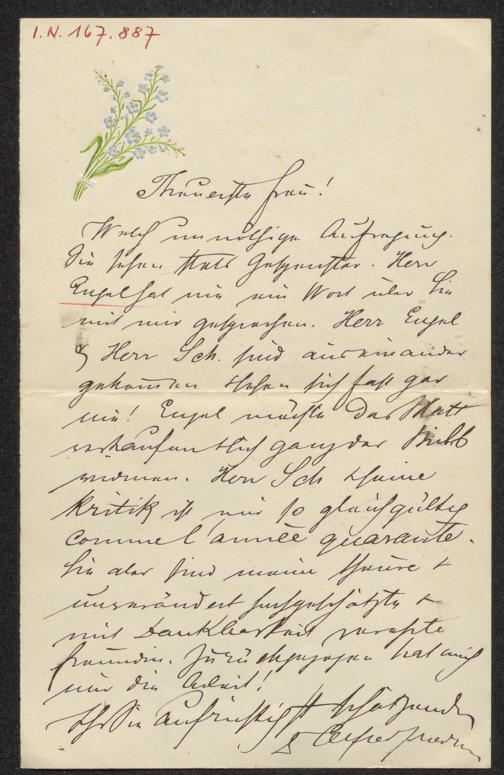 I.N. 167.887
Theuerste Frau!
Welch unnöthige Aufregung.
Sie sehen stets Gespenster. Herr
Engel hat nie ein Wort über Sie
mit mir gesprochen. Herr Engel
& Herr Sch. sind auseinander
gekommen & sehen sich fast gar
nie! Engel möchte das Blatt
verkaufen & sich ganz der
widmen. Herr Sch & seine
Kritik ist mir so gleichgültig
comme l'année quarante.
Sie aber sind meine theure &
unverändert hochgeschätzte &
mit Dankbarkeit verehrte
Freundin. Zurückgezogen hat mich
nur die Arbeit!
Ihr Sie aufrichtigst schätzender
Alfred